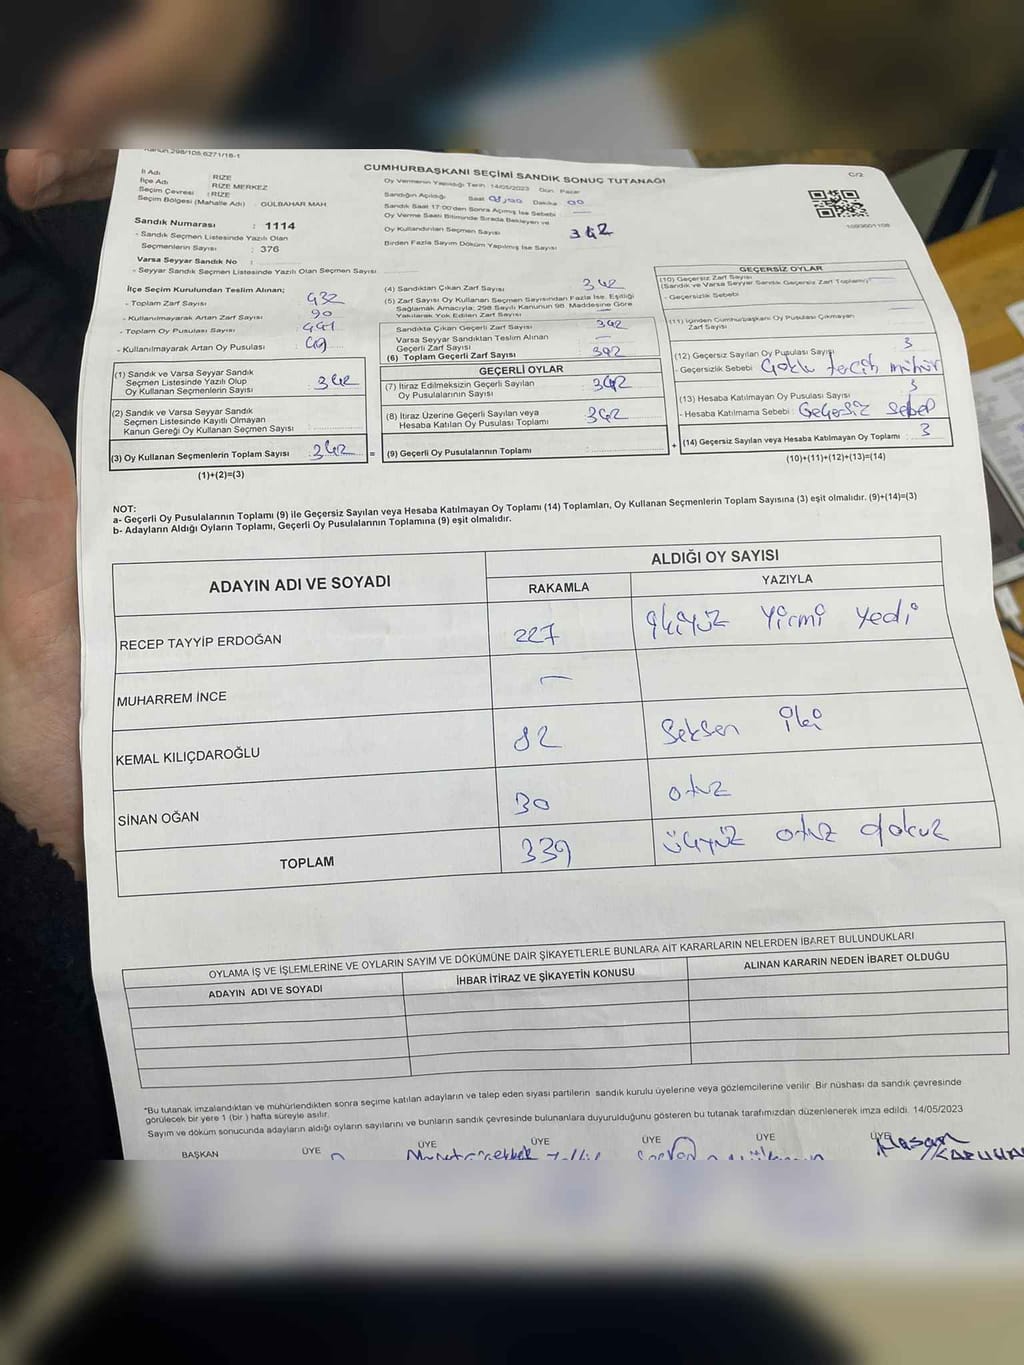 Kanun:298/105,6271/16-1
CUMHURBAŞKANI SEÇİMİ SANDIK SONUÇ TUTANAĞI
C/2
İl Adı : RİZE
İlçe Adı : RİZE MERKEZ
Seçim Çevresi : RİZE
Seçim Bölgesi (Mahalle Adı) : GÜLBAHAR MAH.
Oy Vermenin Yapıldığı Tarih: 14/05/2023 Gün: Pazar
Sandığın Açıldığı Saat Dakika 00
Sandık Saat 17:00'den Sonra Açılmış İse Sebebi
Oy Verme Saati Bitiminde Sırada Bekleyen ve
Oy Kullandırılan Seçmen Sayısı 342
Birden Fazla Sayım Döküm Yapılmış İse Sayısı
Sandık Numarası : 1114
- Sandık Seçmen Listesinde Yazılı Olan
Seçmenlerin Sayısı : 376
Varsa Seyyar Sandık No :
- Seyyar Sandık Seçmen Listesinde Yazılı Olan Seçmen Sayısı
İlçe Seçim Kurulundan Teslim Alınan;
- Toplam Zarf Sayısı 432
- Kullanılmayarak Artan Zarf Sayısı : 90
- Toplam Oy Pusulası Sayısı : 441
- Kullanılmayarak Artan Oy Pusulası :
(1) Sandık ve Varsa Seyyar Sandık
Seçmen Listesinde Yazılı Olup
Oy Kullanan Seçmenlerin Sayısı : 342
(2) Sandık ve Varsa Seyyar Sandık
Seçmen Listesinde Kayıtlı Olmayan
Kanun Gereği Oy Kullanan Seçmen Sayısı :
(3) Oy Kullanan Seçmenlerin Toplam Sayısı : 342 =
(1)+(2)=(3)
(4) Sandıktan Çıkan Zarf Sayısı : 342
(5) Zarf Sayısı Oy Kullanan Seçmen Sayısından Fazla İse, Eşitliği
Sağlamak Amacıyla; 298 Sayılı Kanunun 98. Maddesine Göre
Yakılarak Yok Edilen Zarf Sayısı
Sandıkta Çıkan Geçerli Zarf Sayısı : 342
Varsa Seyyar Sandıktan Teslim Alınan
Geçerli Zarf Sayısı : —
(6) Toplam Geçerli Zarf Sayısı : 342
GEÇERLİ OYLAR
(7) İtiraz Edilmeksizin Geçerli Sayılan
Oy Pusulalarının Sayısı : 342
(8) İtiraz Üzerine Geçerli Sayılan veya
Hesaba Katılan Oy Pusulası Toplamı : 342
(9) Geçerli Oy Pusulalarının Toplamı : +
GEÇERSİZ OYLAR
(10) Geçersiz Zarf Sayısı
(Sandık ve Varsa Seyyar Sandık Geçersiz Zarf Toplamı)
- Geçersizlik Sebebi
(11) İçinden Cumhurbaşkanı Oy Pusulası Çıkmayan
Zarf Sayısı
(12) Geçersiz Sayılan Oy Pusulası Sayısı 3
- Geçersizlik Sebebi : Çoklu tercih mühür
(13) Hesaba Katılmayan Oy Pusulası Sayısı 3
- Hesaba Katılmama Sebebi : Geçersiz sebep
(14) Geçersiz Sayılan veya Hesaba Katılmayan Oy Toplamı : 3
(10)+(11)+(12)+(13)=(14)
NOT:
a- Geçerli Oy Pusulalarının Toplamı (9) ile Geçersiz Sayılan veya Hesaba Katılmayan Oy Toplamı (14) Toplamları, Oy Kullanan Seçmenlerin Toplam Sayısına (3) eşit olmalıdır. (9)+(14)=(3)
b- Adayların Aldığı Oyların Toplamı, Geçerli Oy Pusulalarının Toplamına (9) eşit olmalıdır.
ADAYIN ADI VE SOYADI
ALDIĞI OY SAYISI
RAKAMLA YAZIYLA
RECEP TAYYİP ERDOĞAN 227 İkiyüz Yirmi Yedi
MUHARREM İNCE —
KEMAL KILIÇDAROĞLU 82 Seksen İki
SİNAN OĞAN 30 otuz
TOPLAM 339 üçyüz otuz dokuz
OYLAMA İŞ VE İŞLEMLERİNE VE OYLARIN SAYIM VE DÖKÜMÜNE DAİR ŞİKAYETLERLE BUNLARA AİT KARARLARIN NELERDEN İBARET BULUNDUKLARI
ADAYIN ADI VE SOYADI İHBAR İTİRAZ VE ŞİKAYETİN KONUSU ALINAN KARARIN NEDEN İBARET OLDUĞU
*Bu tutanak imzalandıktan ve mühürlendikten sonra seçime katılan adayların ve talep eden siyasi partilerin sandık kurulu üyelerine veya gözlemcilerine verilir. Bir nüshası da sandık çevresinde
görülecek bir yere 1 (bir) hafta süreyle asılır.
Sayım ve döküm sonucunda adayların aldığı oyların sayılarını ve bunların sandık çevresinde bulunanlara duyurulduğunu gösteren bu tutanak tarafımızdan düzenlenerek imza edildi. 14/05/2023
BAŞKAN ÜYE ÜYE ÜYE ÜYE ÜYE ÜYE
Hasan